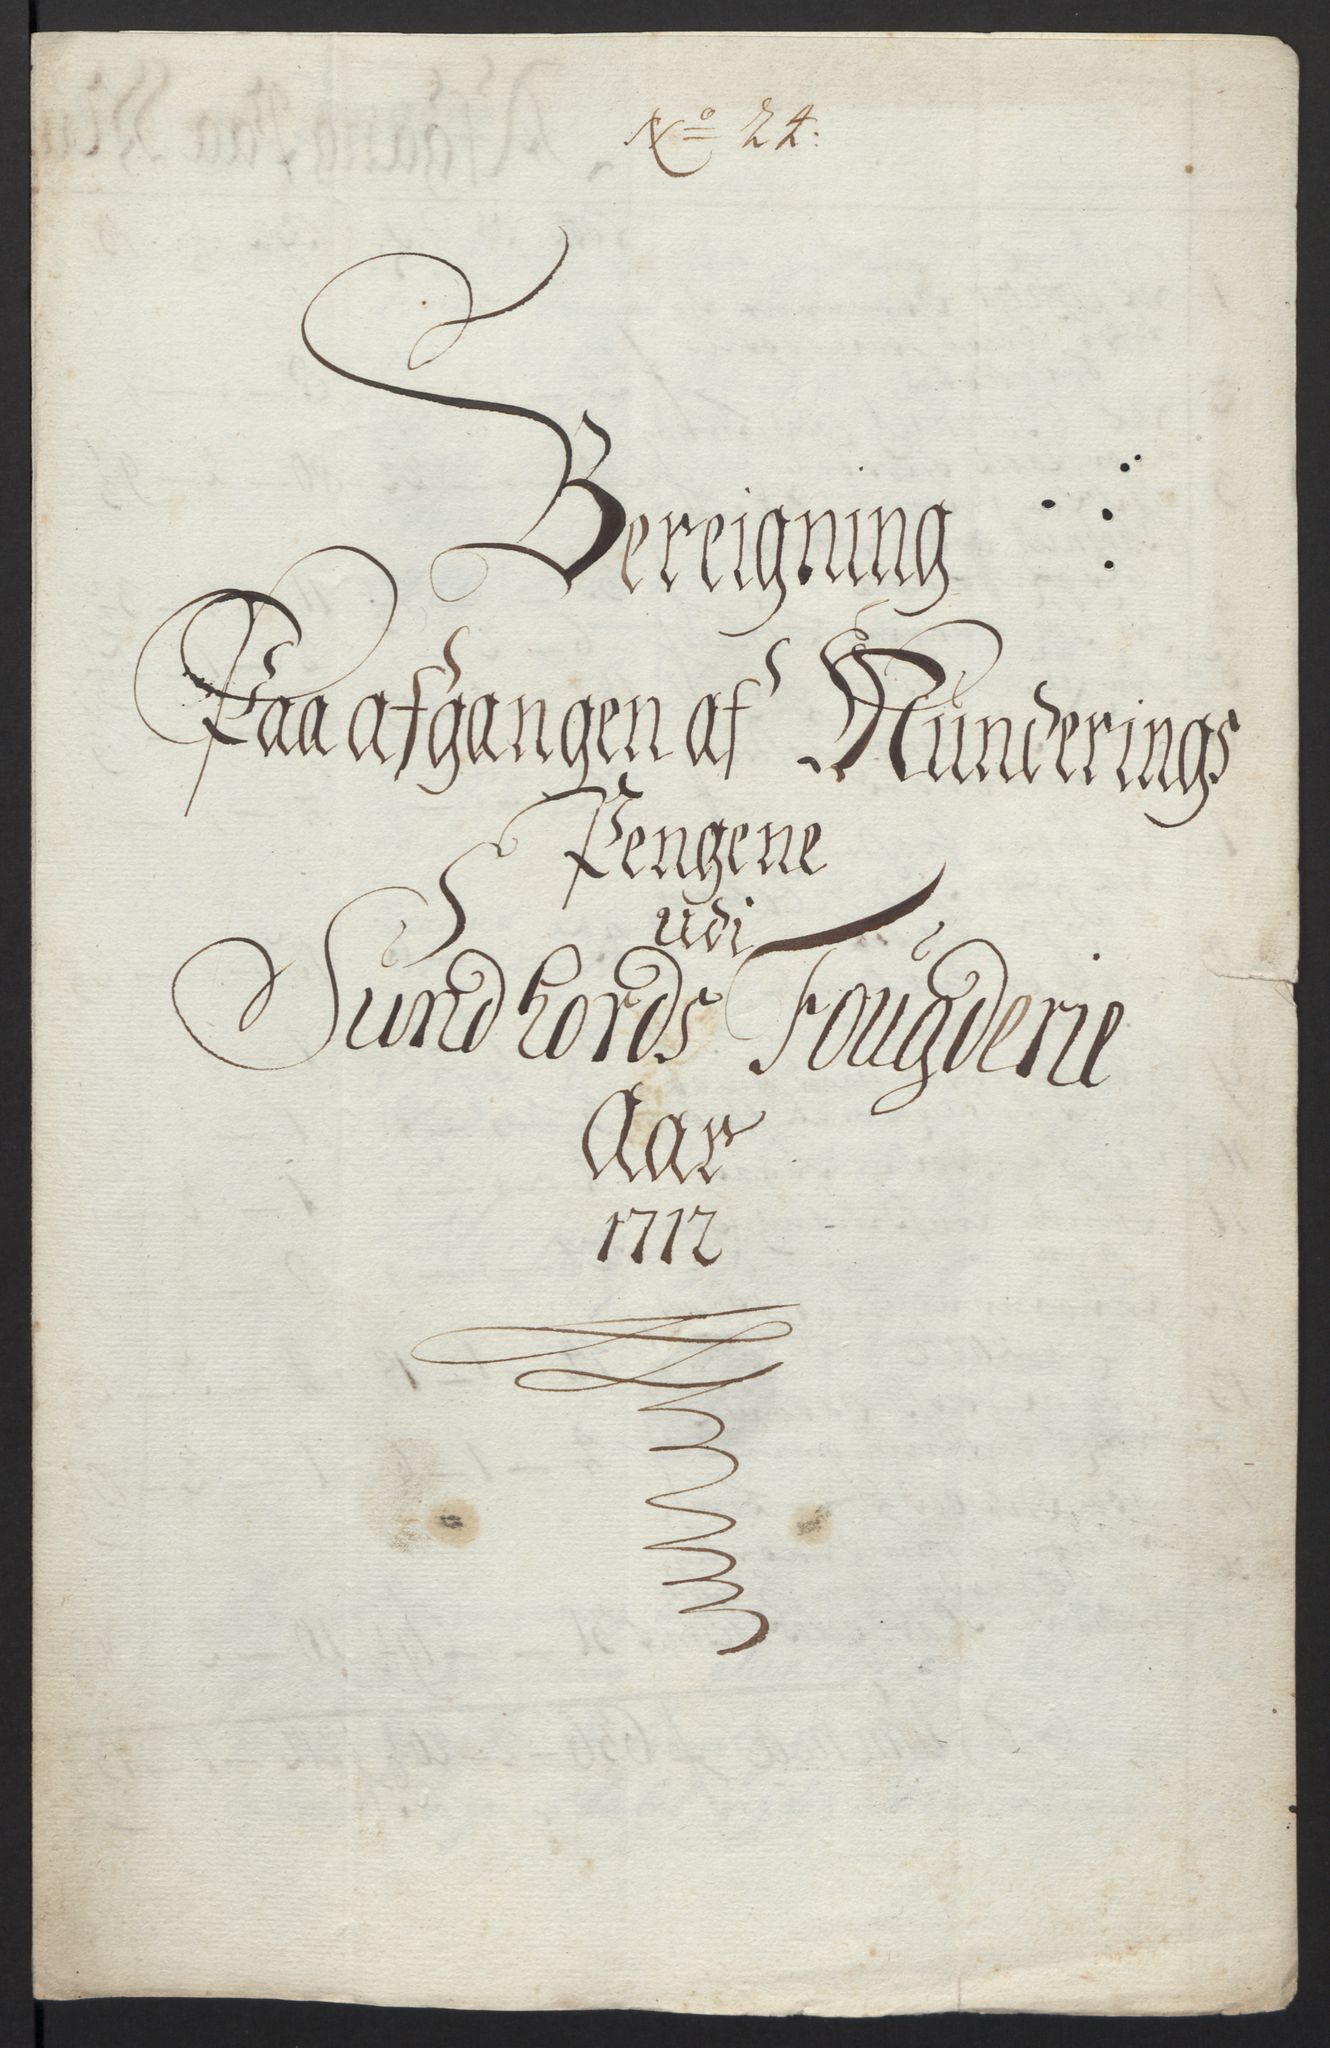 No 24:
Bereigning
Paa afgangen af Münderings
Pengene
udi
Sündhords Fougderie
Aar
1712